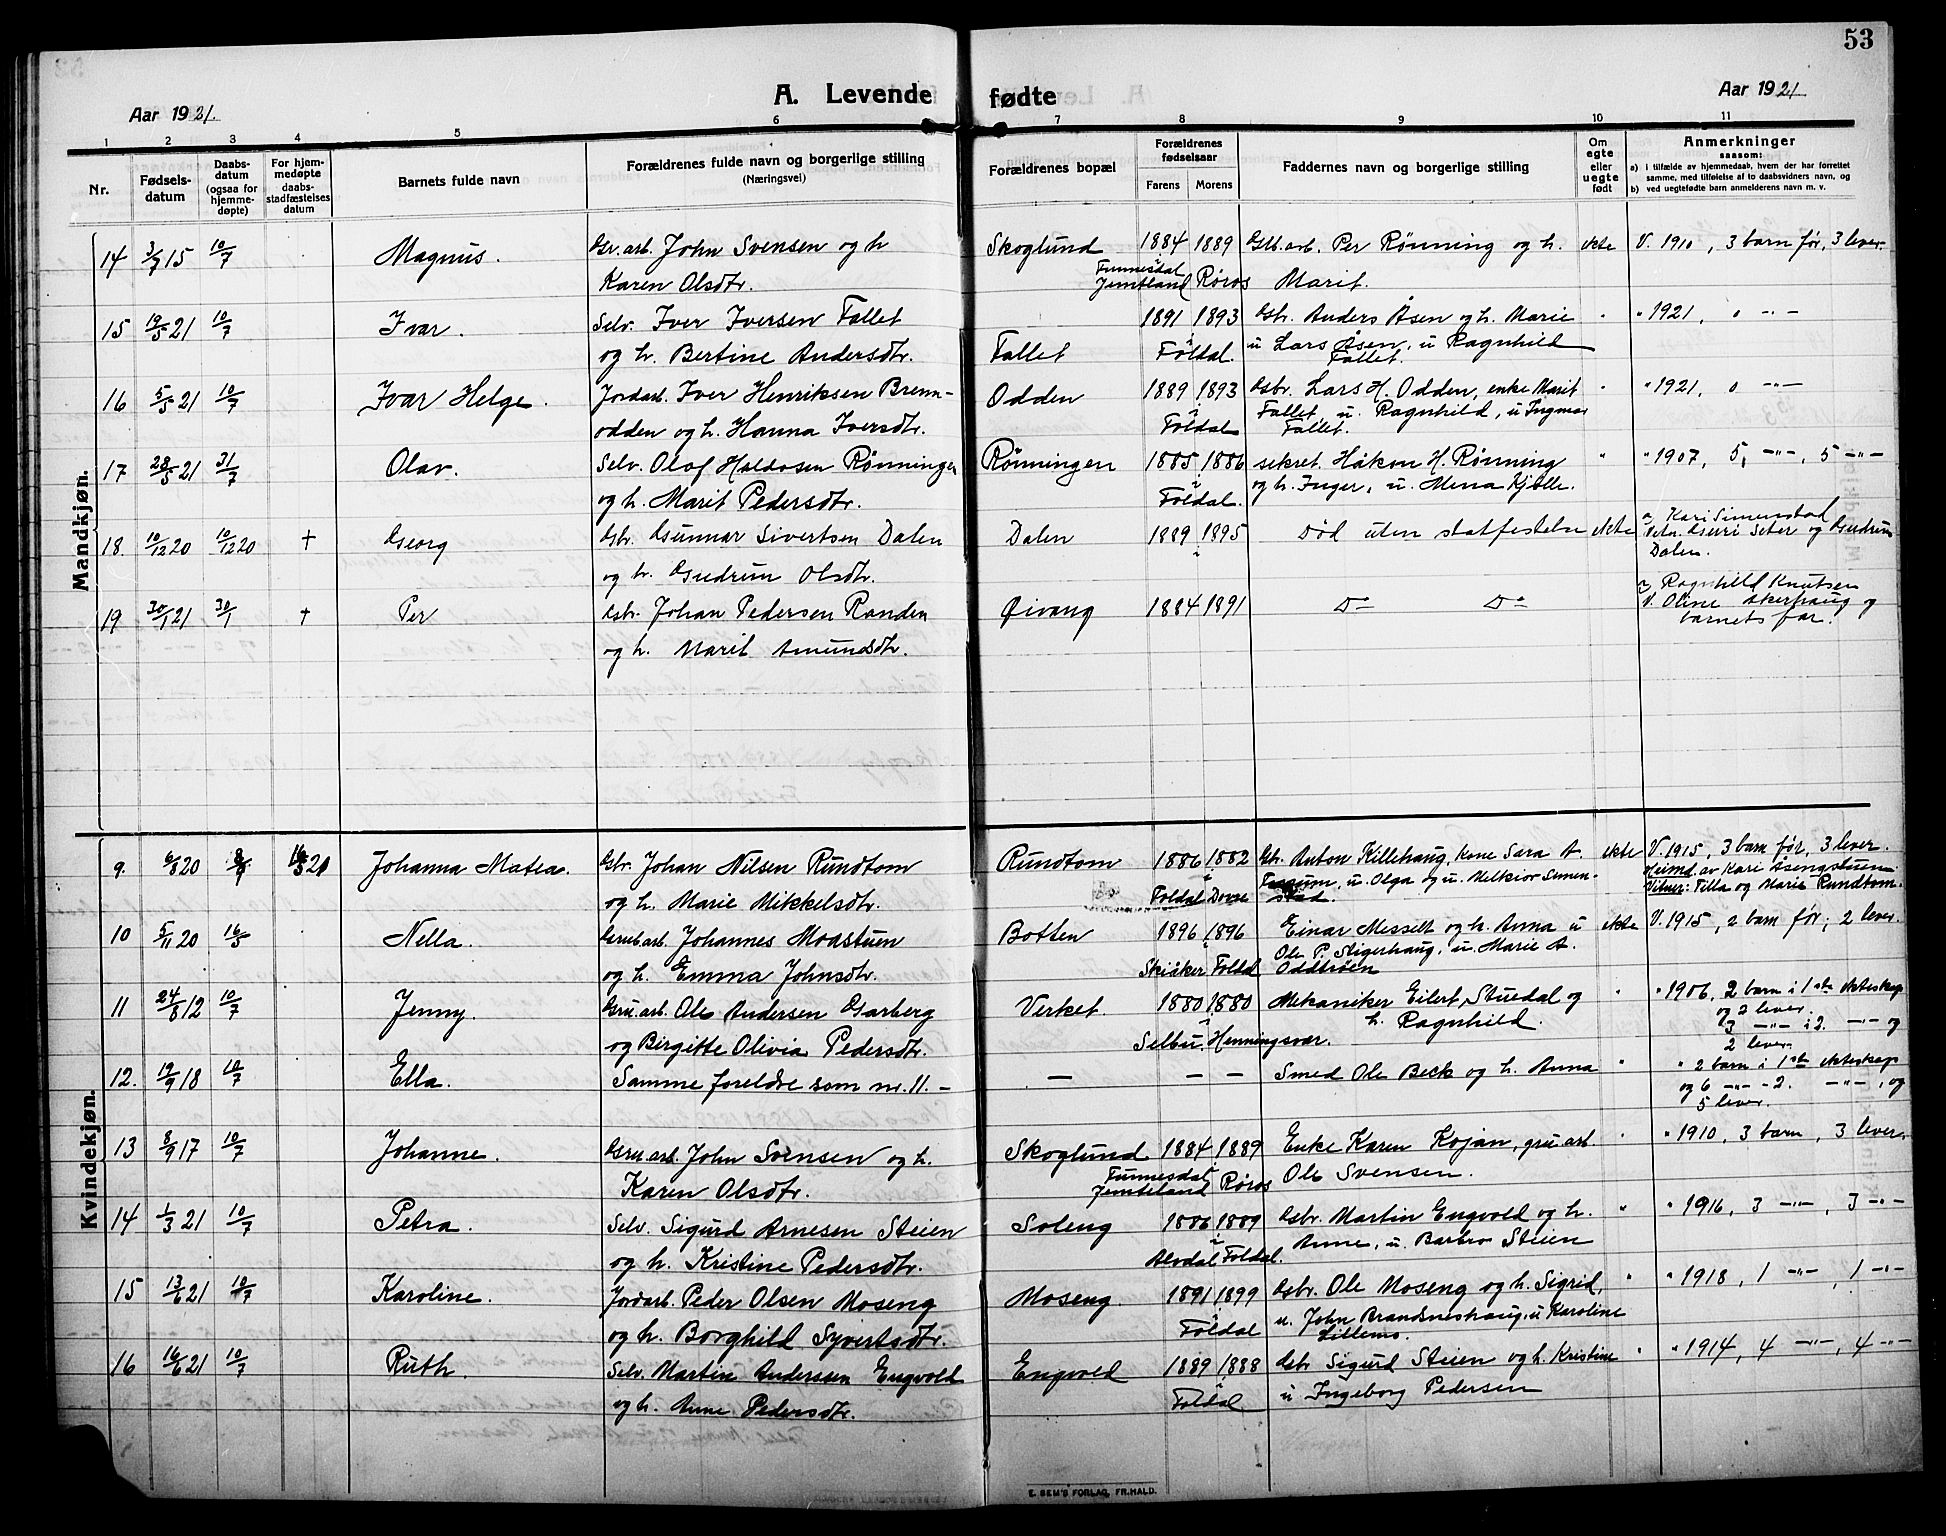 53
A. Levende fødte
Aar 1921.
Aar 1921
1 2 3 4 5 6 7 8 9 10 11
Nr.
Fødsels-
datum
Daabs-
datum
(ogsaa for
hjemme-
døpte)
For hjem-
medøpte
daabs-
stadfæstelses
datum
Barnets fulde navn
Forældrenes fulde navn og borgerlige stilling
(Næringsvei)
Forældrenes bopæl
Forældrenes
fødselsaar
Farens Morens
Faddernes navn og borgerlige stilling
Om
egte
eller
uegte
født
Anmerkninger
saasom:
a) i tilfælde av hjemmedaab, hvem der har forrettet
samme, med tilføielse af to daabsvidners navn, og
b) ved uegtefødte barn anmelderens navn m. v.
Mandkjøn.
14 3/7 15 10/7 Magnus. Gr. arb. John Svensen og h Skoglund 1884 1889 Grb. arb. Per Rønning og h. ekte V. 1910, 3 barn før, 3 lever.
Karen Olsdtr. Funnesdal Jemtland Røros Marit.
15 19/5 21 10/7 Ivar. Selv. Iver Iversen Fallet 1891 1893 Gbr. Anders Åsen og h. Marie " " 1921, 0 -"-
og h. Bertine Andersdtr. Fallet Foldal. u Lars Åsen, u Ragnhild
Fallet.
16 5/5 21 10/7 Ivar Helge. Jordarb. Iver Henriksen Brenn- Odden 1889 1893 Gbr. Lars H. Odden, enke Marit " " 1921, 0 -"-
odden og h. Hanna Iversdtr. Foldal Fallet, u. Ragnhild, u Ingmar
Fallet.
17 28/5 21 31/7 Olav. Selv. Olof Haldosen Rønningen Rønningen 1885 1886 sekret. Håkon H. Rønning " " 1907, 5, -"-, 5 -"-
og h. Marit Pedersdtr. Foldal. og h. Inger, u. Mena Kjølle.
18. 10/12 20 10/12 20 † Georg Gbr. Gunnar Sivertsen Dalen Dalen 1889 1895 Død uten statfestelse ekte a, Kari Simenstad
og h. Gudrun Olsdtr. Vitn. Guri Seter og Gudrun
Dalen.
19 30/1 21 30/1 † Per Gbr. Johan Pedersen Randen Øivang 1884 1891 Do Do a, Ragnhild Knutsen
og h. Marit Amundsdtr. V. Oline Akerhaug og
barnets far.
Kvindekjøn.
9. 6/8 20 8/9 16/5 21 Johanna Matea. Gbr. Johan Nilsen Rundtom Rundtom 1886 1882 Gb. Anton Killehaug, kone Sara A. ekte V. 1915, 3 barn før, 3 lever.
og h. Marie Mikkelsdtr. Foldal Dovre u. Olga og u. Melkior Simen-
stad. Heimd. av Kari Åsengstuen
Vitner: Tilla og Marie Rundtom.
10 5/11 20 16/5 Nella. Grubarb. Johannes Moastuen Botten 1896 1896 Einar Messelt og h. Anna u ekte V. 1915, 2 barn før; 2 lever.
og h. Emma Johnsdtr. Skiåker Foldal Ole P. Stigerhaug, u. Marie A.
Oddtrøen
11 24/8 12 10/7 Jenny. Gru. arb. Ole Andersen Garberg Verket. 1880 1880 Mekaniker Eilert Stuedal og " " 1906, 2 barn i 1ste ekteskap
og Birgitte Olivia Pedersdtr. Selbu. Henningsvær. h. Ragnhild. og 2 lever.
3 -"- i 2. -"- og
2 lever.
12. 19/9 18 10/7 Ella. Samme foreldre som nr. 11. - — — — Smed Ole Beck og h. Anna " " 2 barn i 1ste ekteskap
og 6 -"- - 2. -"-, og
5 lever.
13 8/9 17 10/7 Johanne. Gru. arb. John Svensen og h. Skoglund 1884 1889 Enke Karen Kojan, gru. arb. " " 1910, 3 barn, 3 lever.
Karen Olsdtr. Funnesdal Jemteland Røros Ole Svensen.
14 1/3 21 10/7 Petra. Selv. Sigurd Arnesen Steien Soleng 1886 1889 Gbr. Martin Engvold og h. " " 1916, 3 -"-, 3 -"-
og h. Kristine Pedersdtr. Alvdal Foldal. Anne, u. Barbro Steien
15 13/6 21 10/7 Karoline. Jordarb. Peder Olsen Moseng Moseng. 1891 1899 Gbr. Ole Moseng og h. Sigrid, " " 1918, 1 -"-, 1 -"-
og h. Borghild Syvertsdtr. Foldal u. John Brandsneshaug, u Karoline
Lillemo.
16 16/6 21 10/7 Ruth. Selv. Martin Anderssen Engvold Engvold 1889 1888 Gbr Sigurd Steien og h. Kristine " " 1914, 4 -"-, 4 -"-
og h. Anne Pedersdtr. Foldal u Ingeborg Pedersen
E. SEM'S FORLAG, FR.HALD.